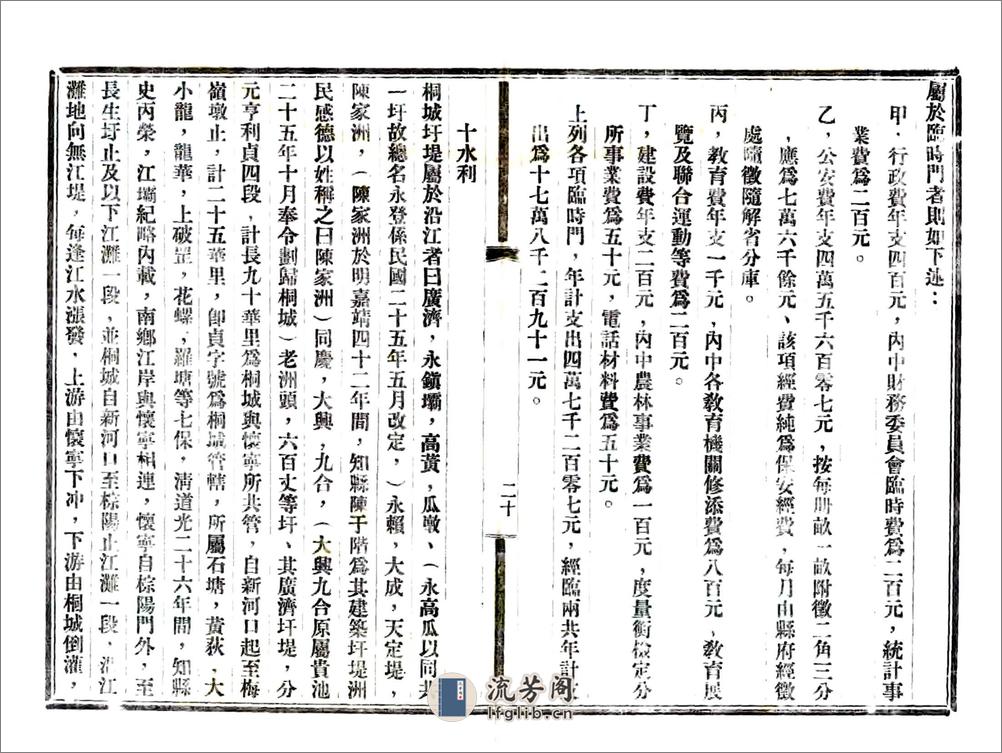 屬於臨時門者則如下述：
甲．行政費年支四百元，內中財務委員會臨時費爲二百元，統計事
業費爲二百元。
乙，公安費年支四萬五千六百零七元，按每册畝一畝附徵二角三分
，應爲七萬六千餘元、該項經費純爲保安經費，每月由縣府經徵
處隨徵隨解省分庫。
丙，敎育費年支一千元，內中各敎育機關修添費爲八百元，敎育展
覽及聯合運動等費爲二百元。
丁，建設費年支二百元，內中農林事業費爲一百元，度量衡檢定分
所事業費爲五十元，電話材料費爲五十元。
上列各項臨時門，年計支出四萬七千二百零七元，經臨兩共年計支
出爲十七萬八千二百九十一元。
二十
十水利
桐城圩堤屬於沿江者曰廣濟，永鎭壩，高黃，瓜墩、（永高瓜以同共
一圩故總名永登係民國二十五年五月改定，）永賴，大成，天定堤，
陳家洲，（陳家洲於明嘉靖四十二年間，知縣陳于階爲其建築圩堤洲
民感德以姓稱之曰陳家洲）同慶，大興，九合，（大興九合原屬貴池
二十五年十月奉令劃歸桐城）老洲頭，六百丈等圩、其廣濟圩堤，分
元亨利貞四段，計長九十華里爲桐城與懷寧所共管，自新河口起至梅
嶺墩止，計二十五華里，卽貞字號爲桐城管轄，所屬石塘，黃荻，大
小龍，龍華，上破罡，花螺，羅塘等七保，淸道光二十六年間，知縣
史丙榮，江壩紀略內載，南鄉江岸與懷寧相連，懷寧自棕陽門外，至
長生圩止及以下江灘一段，並桐城自新河口至棕陽止江灘一段，沿江
灘地向無江堤，每逢江水漲發，上游由懷寧下冲，下游由桐城倒灌，
流芳阁
lfglib.cn